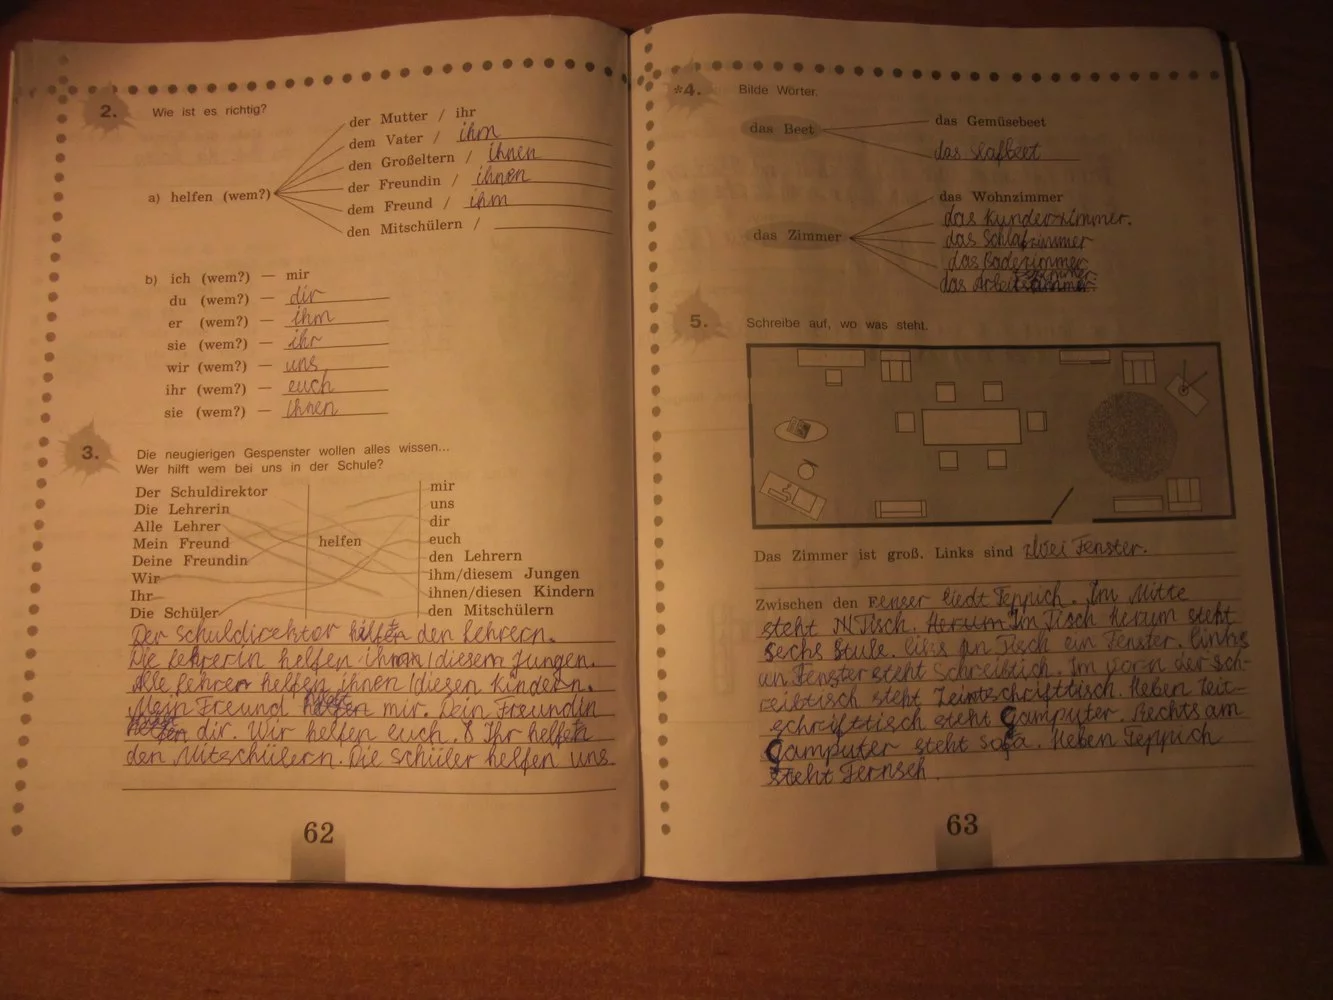 2. Wie ist es richtig?
der Mutter / ihr
dem Vater / ihm
den Großeltern / ihnen
a) helfen (wem?)
der Freundin / ihnen
dem Freund / ihm
den Mitschülern /
b) ich (wem?) — mir
du (wem?) — dir
er (wem?) — ihm
sie (wem?) — ihr
wir (wem?) — uns
ihr (wem?) — euch
sie (wem?) — ihnen
3. Die neugierigen Gespenster wollen alles wissen...
Wer hilft wem bei uns in der Schule?
Der Schuldirektor
Die Lehrerin
Alle Lehrer
Mein Freund
Deine Freundin
Wir
Ihr
Die Schüler
helfen
mir
uns
dir
euch
den Lehrern
ihm/diesem Jungen
ihnen/diesen Kindern
den Mitschülern
Der Schuldirektor den Lehrern.
Die Lehrerin helfen /diesem Jungen.
Alle Lehrer helfen ihnen/diesen Kindern.
Mein Freund mir. Dein Freundin
dir. Wir helfen euch. Ihr
den Mitschülern. Die Schüler helfen uns
62
*4. Bilde Wörter.
das Beet
das Gemüsebeet
das
das Zimmer
das Wohnzimmer
das Kunderzimmer.
das Schlafzimmer
das Badezimmer
das Arbeitszimmer
5. Schreibe auf, wo was steht.
Das Zimmer ist groß. Links sind zwei Fenster.
Zwischen den Fenser Teppich. Im Mitte
steht Tisch. Im Tisch herum steht
sechs Stule. an Tisch ein Fenster. Links
un Fenster steht Schreibtisch. Im vorn der Sch-
reibtisch steht Neben Zeit-
schrifttisch steht Camputer. Rechts am
Camputer steht Sofa. Neben Teppich
steht Fernseh.
63